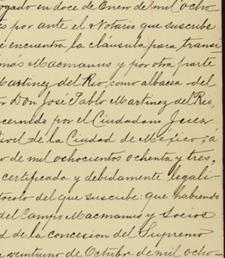 ogado en doce de Enero de mil ocho
és por ante el Notario que suscribe
é encuentra la cláusula para transi
más Macmanus y por otra parte
Martinez del Rio, como albacea del
or Don José Pablo Martinez del Rio,
cernido por el Ciudadano Juez
Civil de la Ciudad de Mejico, á
o de mil ochocientos ochenta y tres,
certificada y debidamente legali
tocolo del que suscribe: que habiendo
del Campo Macmanus y Socios
d de la concesion del Supremo
veintiuno de Octubre de mil ocho-